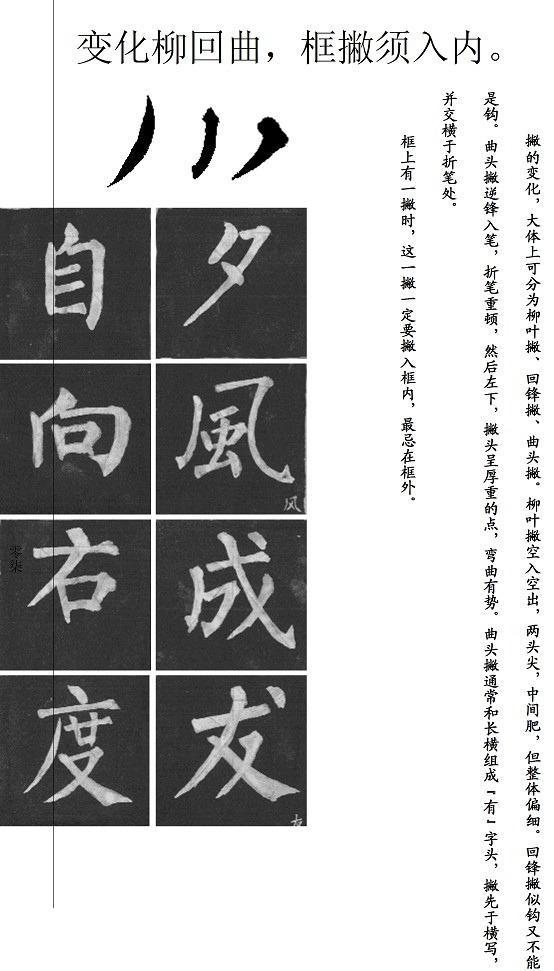 变化柳回曲，框撇须入内。
撇的变化，大体上可分为柳叶撇、回锋撇、曲头撇。柳叶撇空入空出，两头尖，中间肥，但整体偏细。回锋撇似钩又不能
是钩。曲头撇逆锋入笔，折笔重顿，然后左下，撇头呈厚重的点，弯曲有势。曲头撇通常和长横组成“有”字头，撇先于横写，
并交横于折笔处。
框上有一撇时，这一撇一定要撇入框内，最忌在框外。
夕
風
风
成
友
友
自
向
右
度
零柒